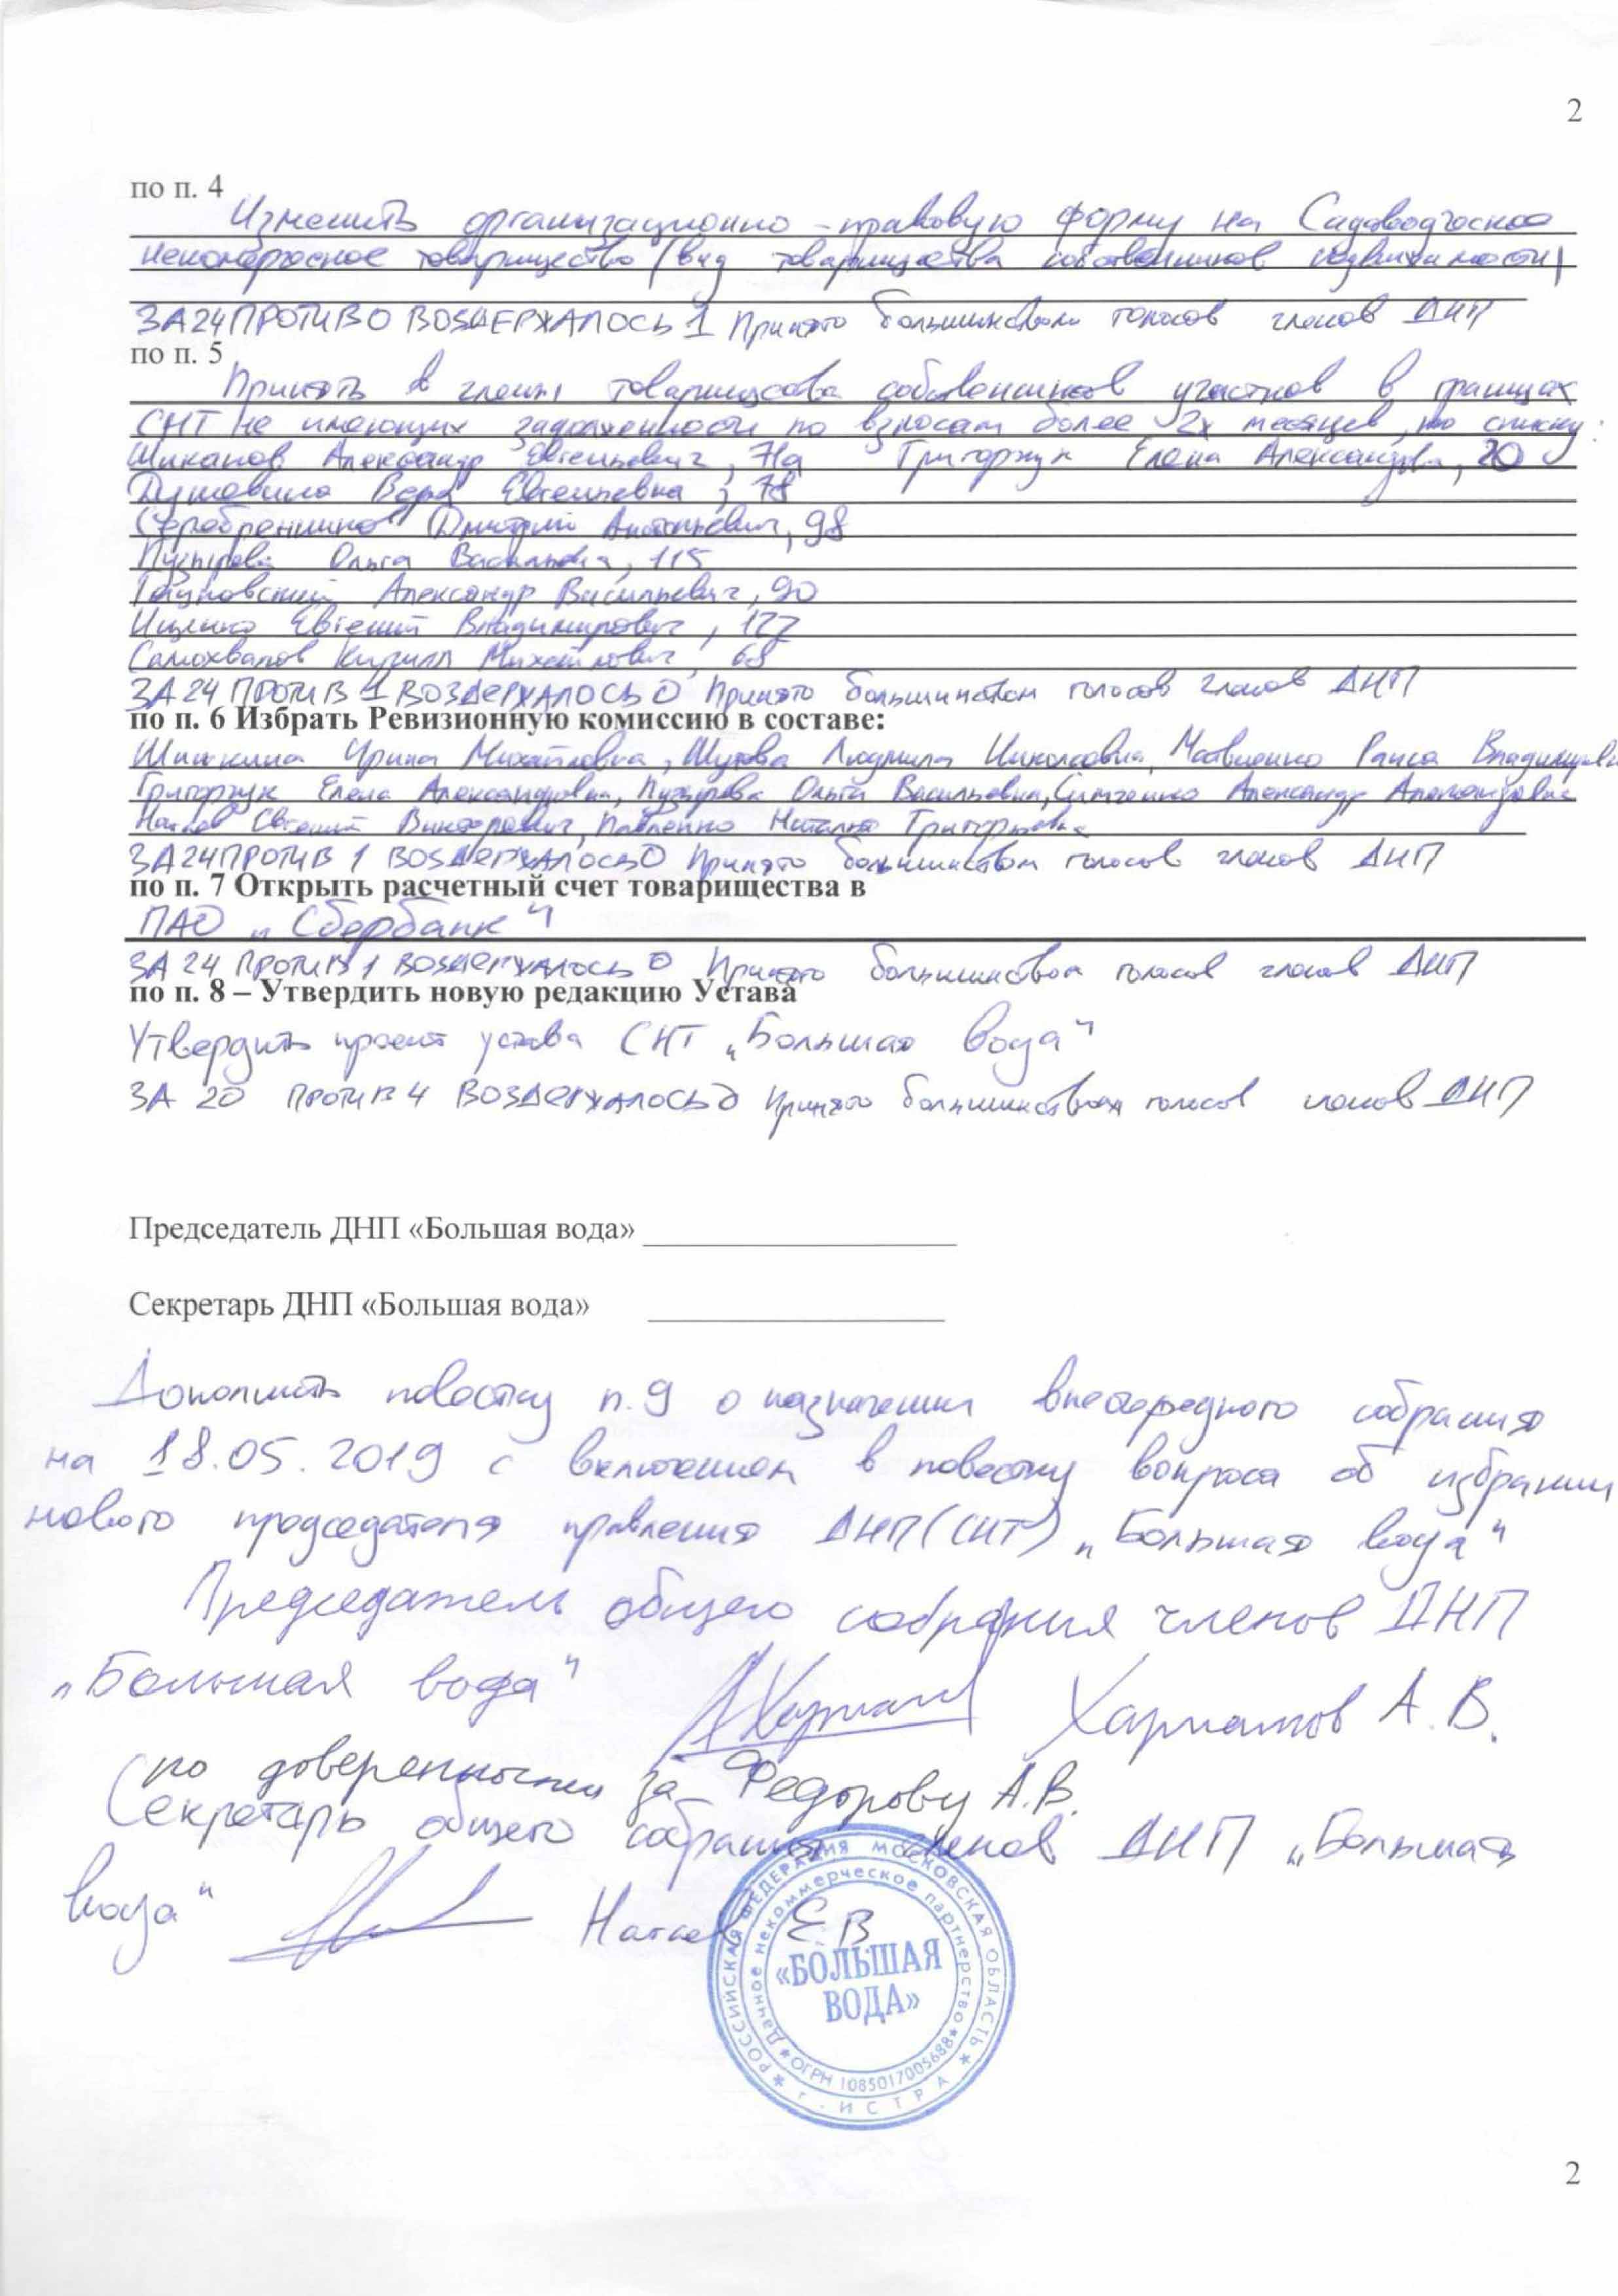 2
по п. 4
Изменить организационно-правовую форму на Садоводческое
некоммерческое товарищество (вид товарищества собственников недвижимости)
ЗА 24 ПРОТИВ 0 ВОЗДЕРЖАЛОСЬ 1 Принято большинством голосов членов ДНП
по п. 5
Принять в члены товарищества собственников участков в границах
СНТ не имеющих задолженности по взносам более 2х месяцев, по списку:
Шиканов Александр Евгеньевич, 71а Григоржук Елена Александровна, 20
Вера Евгеньевна, 78
Дмитрий Анатольевич, 98
Пузырева Ольга Васильевна, 115
Александр Васильевич, 90
Ищенко Евгений Владимирович, 127
Самохвалов Кирилл Михайлович, 68
ЗА 24 ПРОТИВ 1 ВОЗДЕРЖАЛОСЬ 0 Принято большинством голосов членов ДНП
по п. 6 Избрать Ревизионную комиссию в составе:
Шишкина Ирина Михайловна, Шутова Людмила Николаевна, Матвиенко Раиса Владимировна
Григоржук Елена Александровна, Пузырева Ольга Васильевна, Симченко Александр Александрович
Евгений Викторович, Павленко Наталья Григорьевна
ЗА 24 ПРОТИВ 1 ВОЗДЕРЖАЛОСЬ 0 Принято большинством голосов членов ДНП
по п. 7 Открыть расчетный счет товарищества в
ПАО „Сбербанк"
ЗА 24 ПРОТИВ 1 ВОЗДЕРЖАЛОСЬ 0 Принято большинством голосов членов ДНП
по п. 8 – Утвердить новую редакцию Устава
Утвердить проект устава СНТ „Большая вода"
ЗА 20 ПРОТИВ 4 ВОЗДЕРЖАЛОСЬ 0 Принято большинством голосов членов ДНП
Председатель ДНП «Большая вода»
Секретарь ДНП «Большая вода»
Дополнить повестку п. 9 о назначении внеочередного собрания
на 18.05.2019 с включением в повестку вопроса об избрании
нового председателя правления ДНП (СНТ) „Большая вода"
Председатель общего собрания членов ДНП
„Большая вода" Харламов А. В.
по доверенности за Федорову А.В.
Секретарь общего собрания членов ДНП „Большая
вода" Е.В
РОССИЙСКАЯ ФЕДЕРАЦИЯ МОСКОВСКАЯ ОБЛАСТЬ * г. ИСТРА *
Дачное некоммерческое партнерство * ОГРН 1085017005688 *
«БОЛЬШАЯ
ВОДА»
2